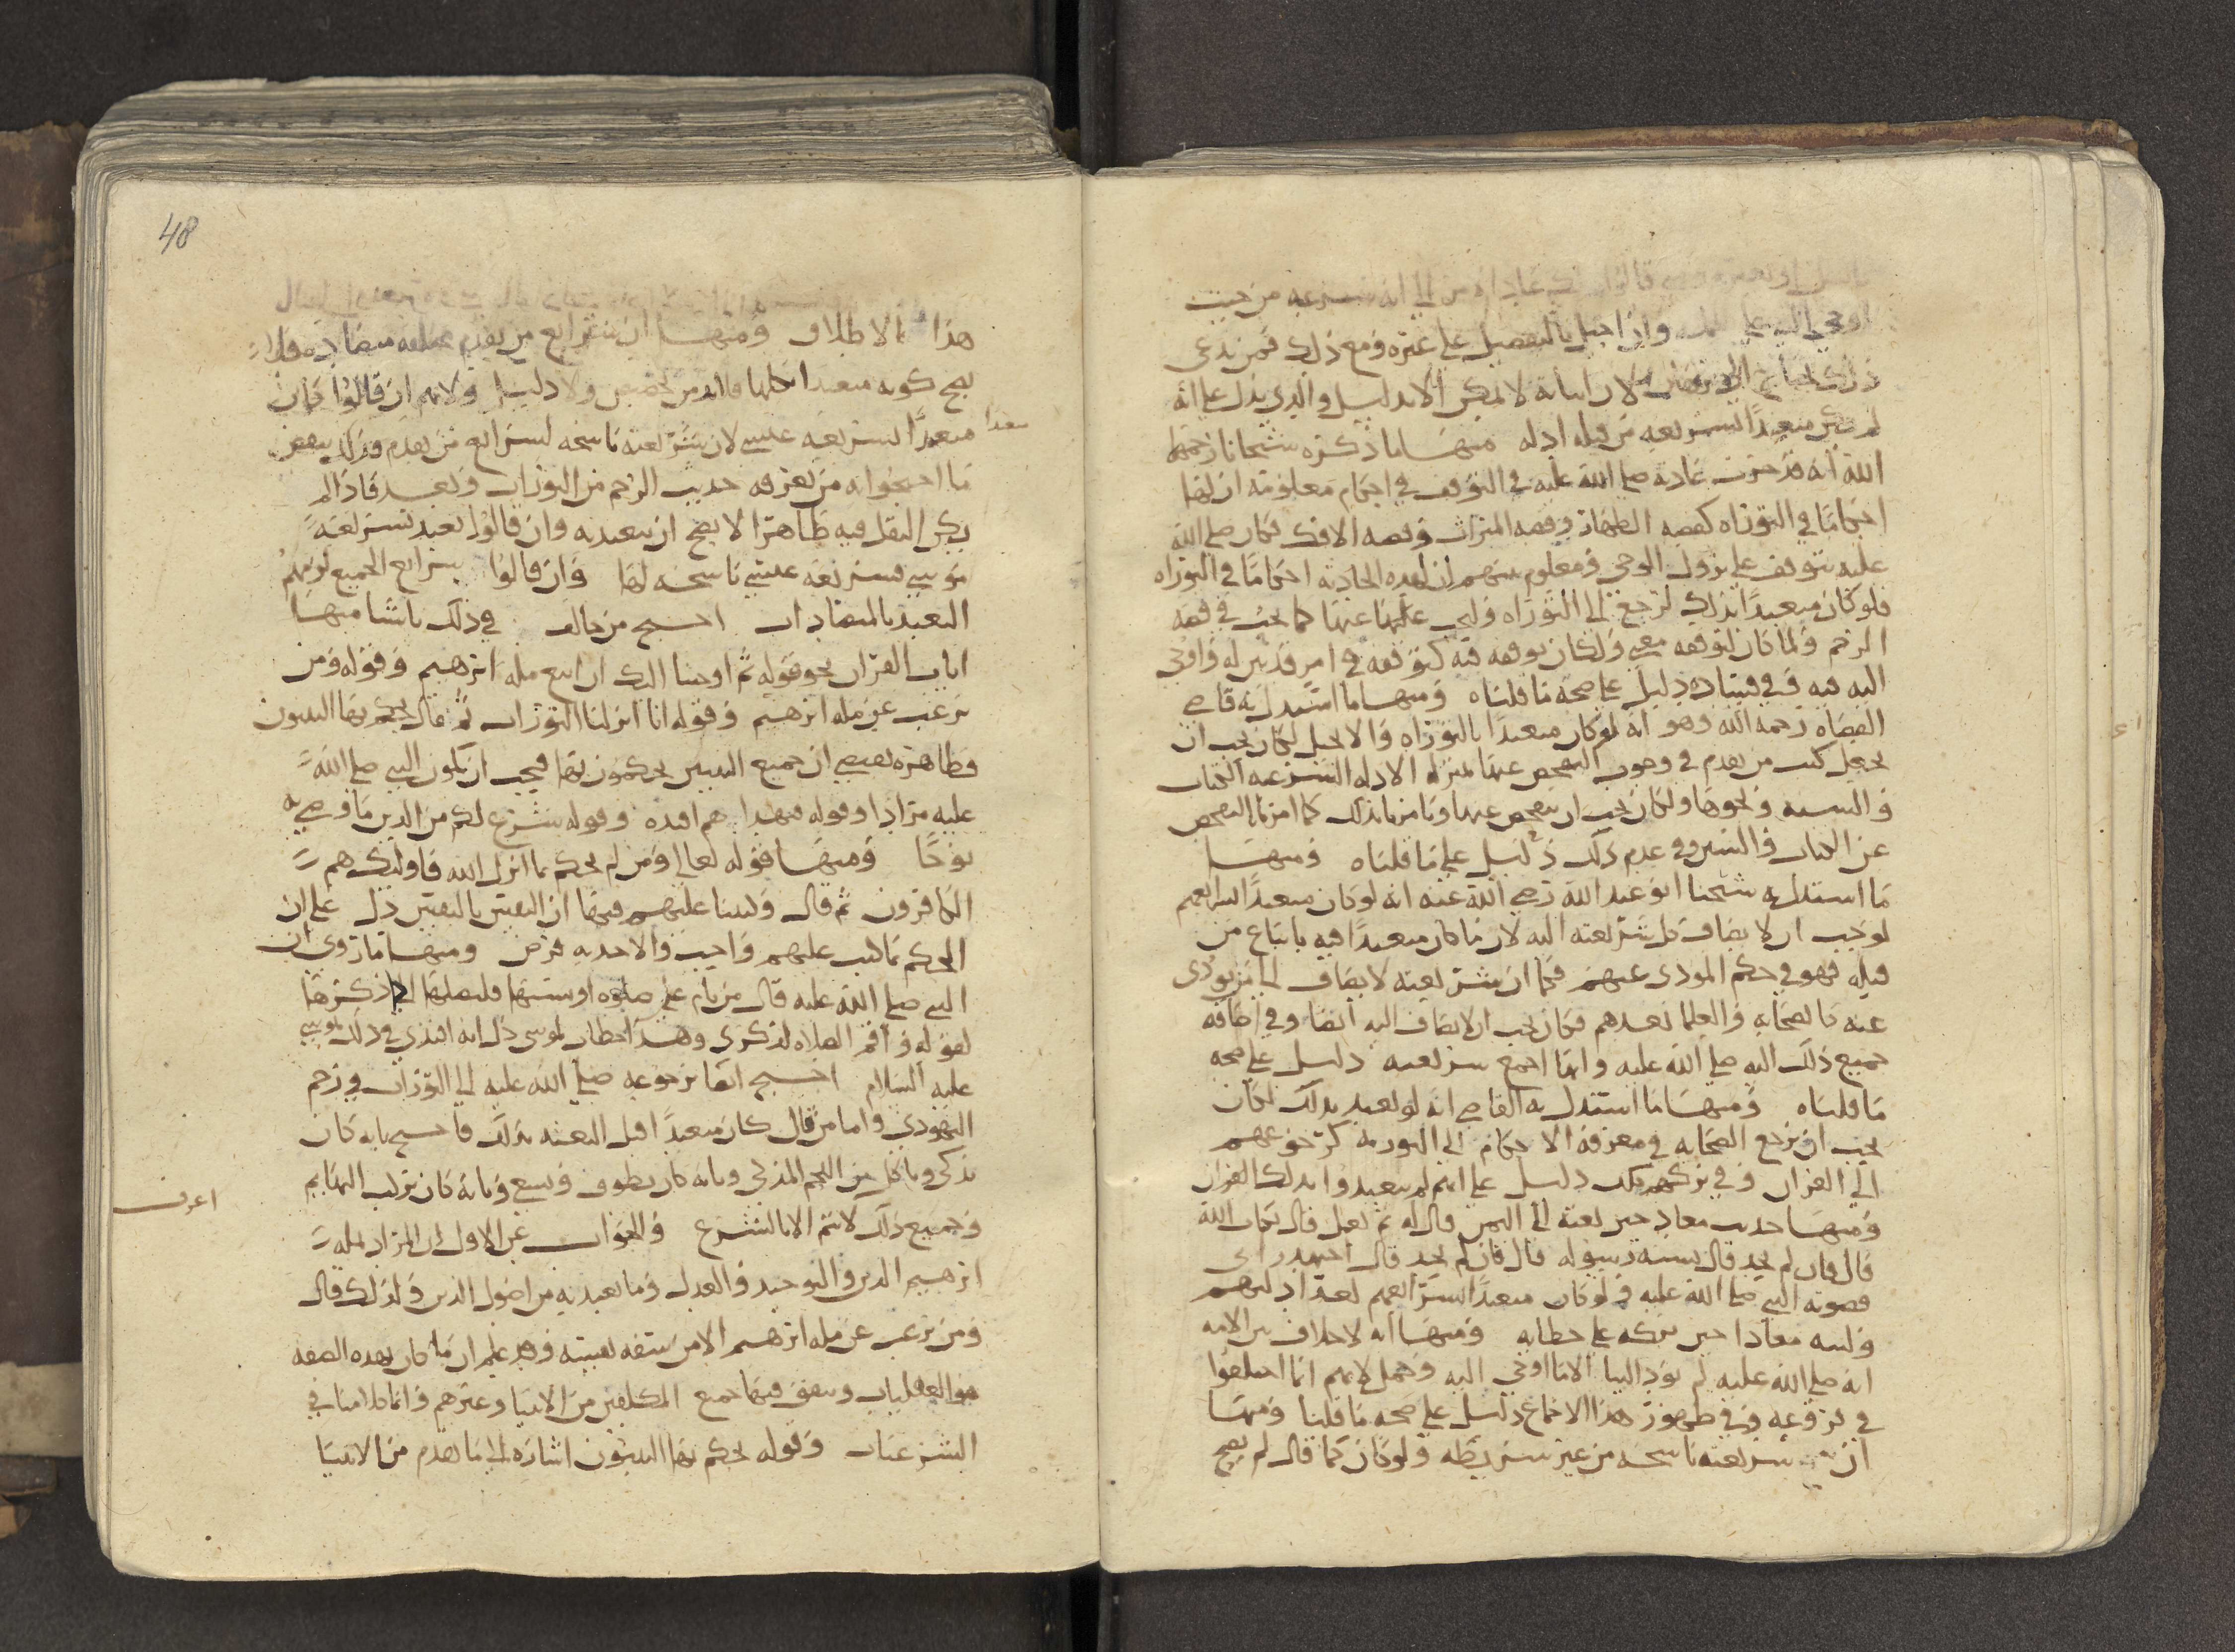 اوحي اليه وان احيل بالتفصيل على غيره ومع ذلك فمن يدعي
ذلك يحتاج الى لان اثباته لا يمكن الا بدليل والذي يدل على انه
لم يكن متعبدًا لشريعه من قبله ادله منها ما ذكره شيخانا رحمهما
الله انه قد جرت عادته صلى الله عليه في التوقف في احكام معلومة ان لها
احكامًا في التوراه كقصه الظهار وقصه الميراث وقصه الافك فكان صلى الله
عليه يتوقف على نزول الوحي ومعلوم ان لهذه الحادثه احكامًا في التوراه
فلو كان متعبدًا بذلك لرجع الى التوراه ولبحث عنها كما بحث في قصه
الرجم ولما كان لتوقفه معنى ولكان توقفه فيه كتوقفه في امر قد بين له واوحي
اليه فيه وفي فساده دليل على صحة ما قلناه ومنها ما استدل به قاضي
القضاه رحمه الله وهو انه لو كان متعبدًا بالتوراه والانجيل لكان يجب ان
يجعل كتب من تقدم في وجوب التفحص عنها بمنزله الادله الشرعيه الكتاب
والسنه ونحوها ولكان يجب ان يتفحص عنها ويامرنا بذلك كما امرنا بالتفحص
عن الكتاب والسنن وفي عدم ذلك دليل على ما قلناه ومنها
ما استدل به شيخنا ابو عبد الله رضي الله عنه انه لو كان متعبدًا بشرايعهم
لوجب ان لا يضاف كل شريعته اليه لان ما كان متعبدًا فيه باتباع من
قبله فهو في حكم المودي عنهم فكما ان شريعته لا يضاف الى من يودى
عنه كالصحابه والعلما بعدهم فكان يجب ان لا يضاف اليه ايضًا وفي اضافه
جميع ذلك اليه صلى الله عليه وانها اجمع شريعته دليل على صحه
ما قلناه ومنها ما استدل به القاضي انه لو تعبد بذلك لكان
يجب ان يرجع الصحابه في معرفة الاحكام الى التوريه كرجوعهم
الى القران وفي تركهم ذلك دليل على انهم لم يتعبدوا بذلك القران
ومنها حديث معاذ حين بعثه الى اليمن قال له بم تعمل قال بكتاب الله
قال فان لم تجد قال بسنة رسوله قال فان لم تجد قال اجتهد رايي
فصوبه النبي صلى الله عليه ولو كان متعبدًا بشرايعهم لعد ادلتهم
ولنبه معاذا حين تركه على خطابه ومنها انه لا خلاف بين الامه
انه صلى الله عليه لم يود الينا الا ما اوحي اليه وحمل لانهم انما اختلفوا
في فروعه وفي ظهور هذا الاجماع دليل على صحه ما قلنا ومنها
ان شريعته ناسخه من غير شريطه ولو كان كما قال لم يصح
48
هذا الاطلاق ومنها ان شرايع من تقدم مختلفه متضاده فلا
يصح كونه متعبدا بكلها فلا بد من تخصيص ولا دليل ولانهم ان قالوا كان
متعبدًا بشريعه عيسى لان شريعته ناسخه لشرايع من تقدم وذلك ينقض
ما احتجوا به من تعرفه حديث الرجم من التوراه وبعد فاذا لم
يكن النقل فيه ظاهرا لا يصح ان يتعبد به وان قالوا تعبد بشريعه
موسى فشريعه عيسى ناسخه لها وان قالوا بشرايع الجميع لزمهم
التعبد بالمتضادات احتج من خالف في ذلك باشيا منها
ايات القران نحو قوله ثم اوحينا اليك ان اتبع مله ابرهيم وقوله ومن
يرغب عن مله ابرهيم وقوله انا انزلنا التوراه ثم قال يحكم بها النبيون
فظاهره يقتضي ان جميع النبيين يحكمون بها فيجب ان يكون النبي صلى الله
عليه مرادا وقوله فبهداهم اقتده وقوله شرع لكم من الدين ما وصى به
نوحًا ومنها قوله تعالى ومن لم يحكم بما انزل الله فاولئك هم
الكافرون ثم قال وكتبنا عليهم فيها ان النفس بالنفس دل على ان
الحكم بما كتب عليهم واجب والاخذ به فرض ومنها ما روي ان
النبي صلى الله عليه قال من نام على صلوه او نسيها فليصلها اذا ذكرها
لقوله واقم الصلاه لذكرى وهذا خطاب لموسى دل انه اقتدى في ذلك بموسى
عليه السلام احتج ايضا برجوعه صلى الله عليه الى التوراه في رجم
اليهودي واما من قال كان متعبدًا قبل البعثه بذلك فاحتج بانه كان
يذكي وياكل من اللحم المذكى وبانه كان يطوف ويسعى وبانه كان يركب البهايم
وجميع ذلك لا يتم الا بالشرع والجواب عن الاول ان المراد بمله
ابرهيم الدين والتوحيد والعدل وما تعبد به من اصول الدين ولذلك قال
ومن يرغب عن مله ابرهيم الا من سفه نفسه وقد علم ان ما كان بهذه الصفه
هو العقليات ويتفق فيها جميع المكلفين من الانبيا وغيرهم وانما كلامنا في
الشرعيات وقوله يحكم بها النبيون اشاره الى ما تقدم من الانبيا